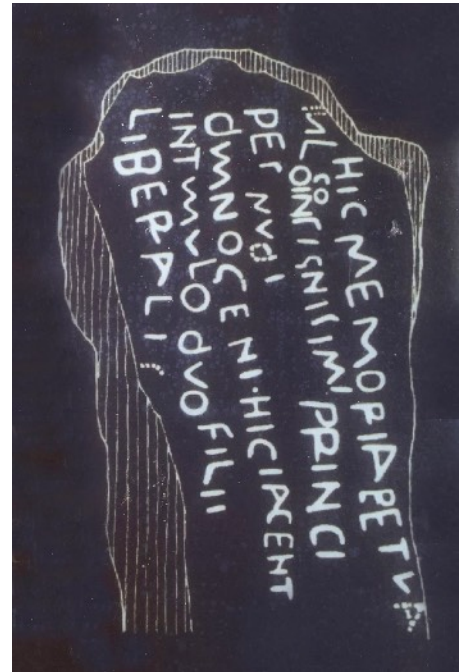 HIC MEMORIA PETVA
IN LOCO INSIGNISIMI PRINCI
PES NVDI
DVMNOGENI · HIC IACENT
IN TVMVLO DVO FILII
LIBERALI